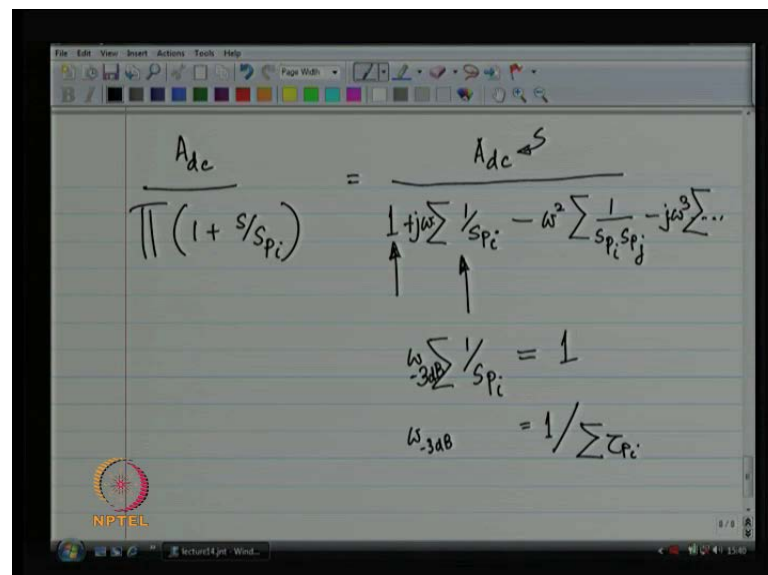 File Edit View Insert Actions Tools Help
Page Width
B I
A_dc / ∏ (1 + s/s_pi) = A_dc s / 1 + jω∑ 1/s_pi − ω² ∑ 1/s_pi s_pj − jω³ ∑...
ω_-3dB ∑ 1/s_pi = 1
ω_-3dB = 1/∑ τ_pi
NPTEL
8/8
lecture14.jnt - Wind...
15:40